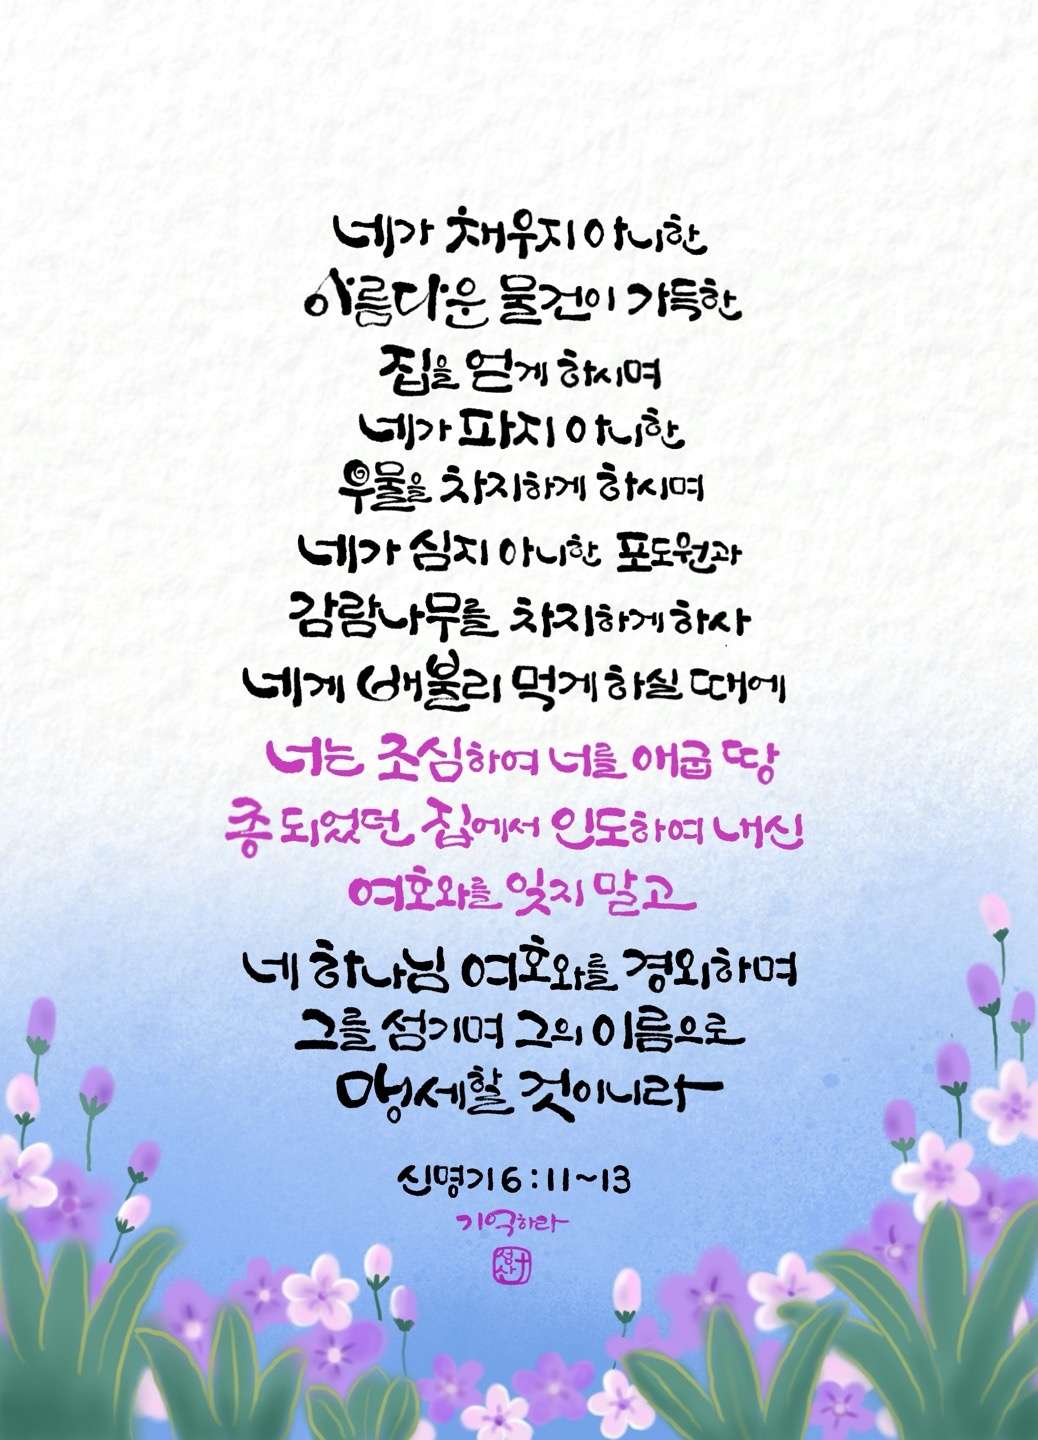 네가 채우지 아니한
아름다운 물건이 가득한
집을 얻게 하시며
네가 파지 아니한
우물을 차지하게 하시며
네가 심지 아니한 포도원과
감람나무를 차지하게 하사
네게 배불리 먹게 하실 때에
너는 조심하여 너를 애굽 땅
종 되었던 집에서 인도하여 내신
여호와를 잊지 말고
네 하나님 여호와를 경외하며
그를 섬기며 그의 이름으로
맹세할 것이니라
신명기 6:11~13
기억하라